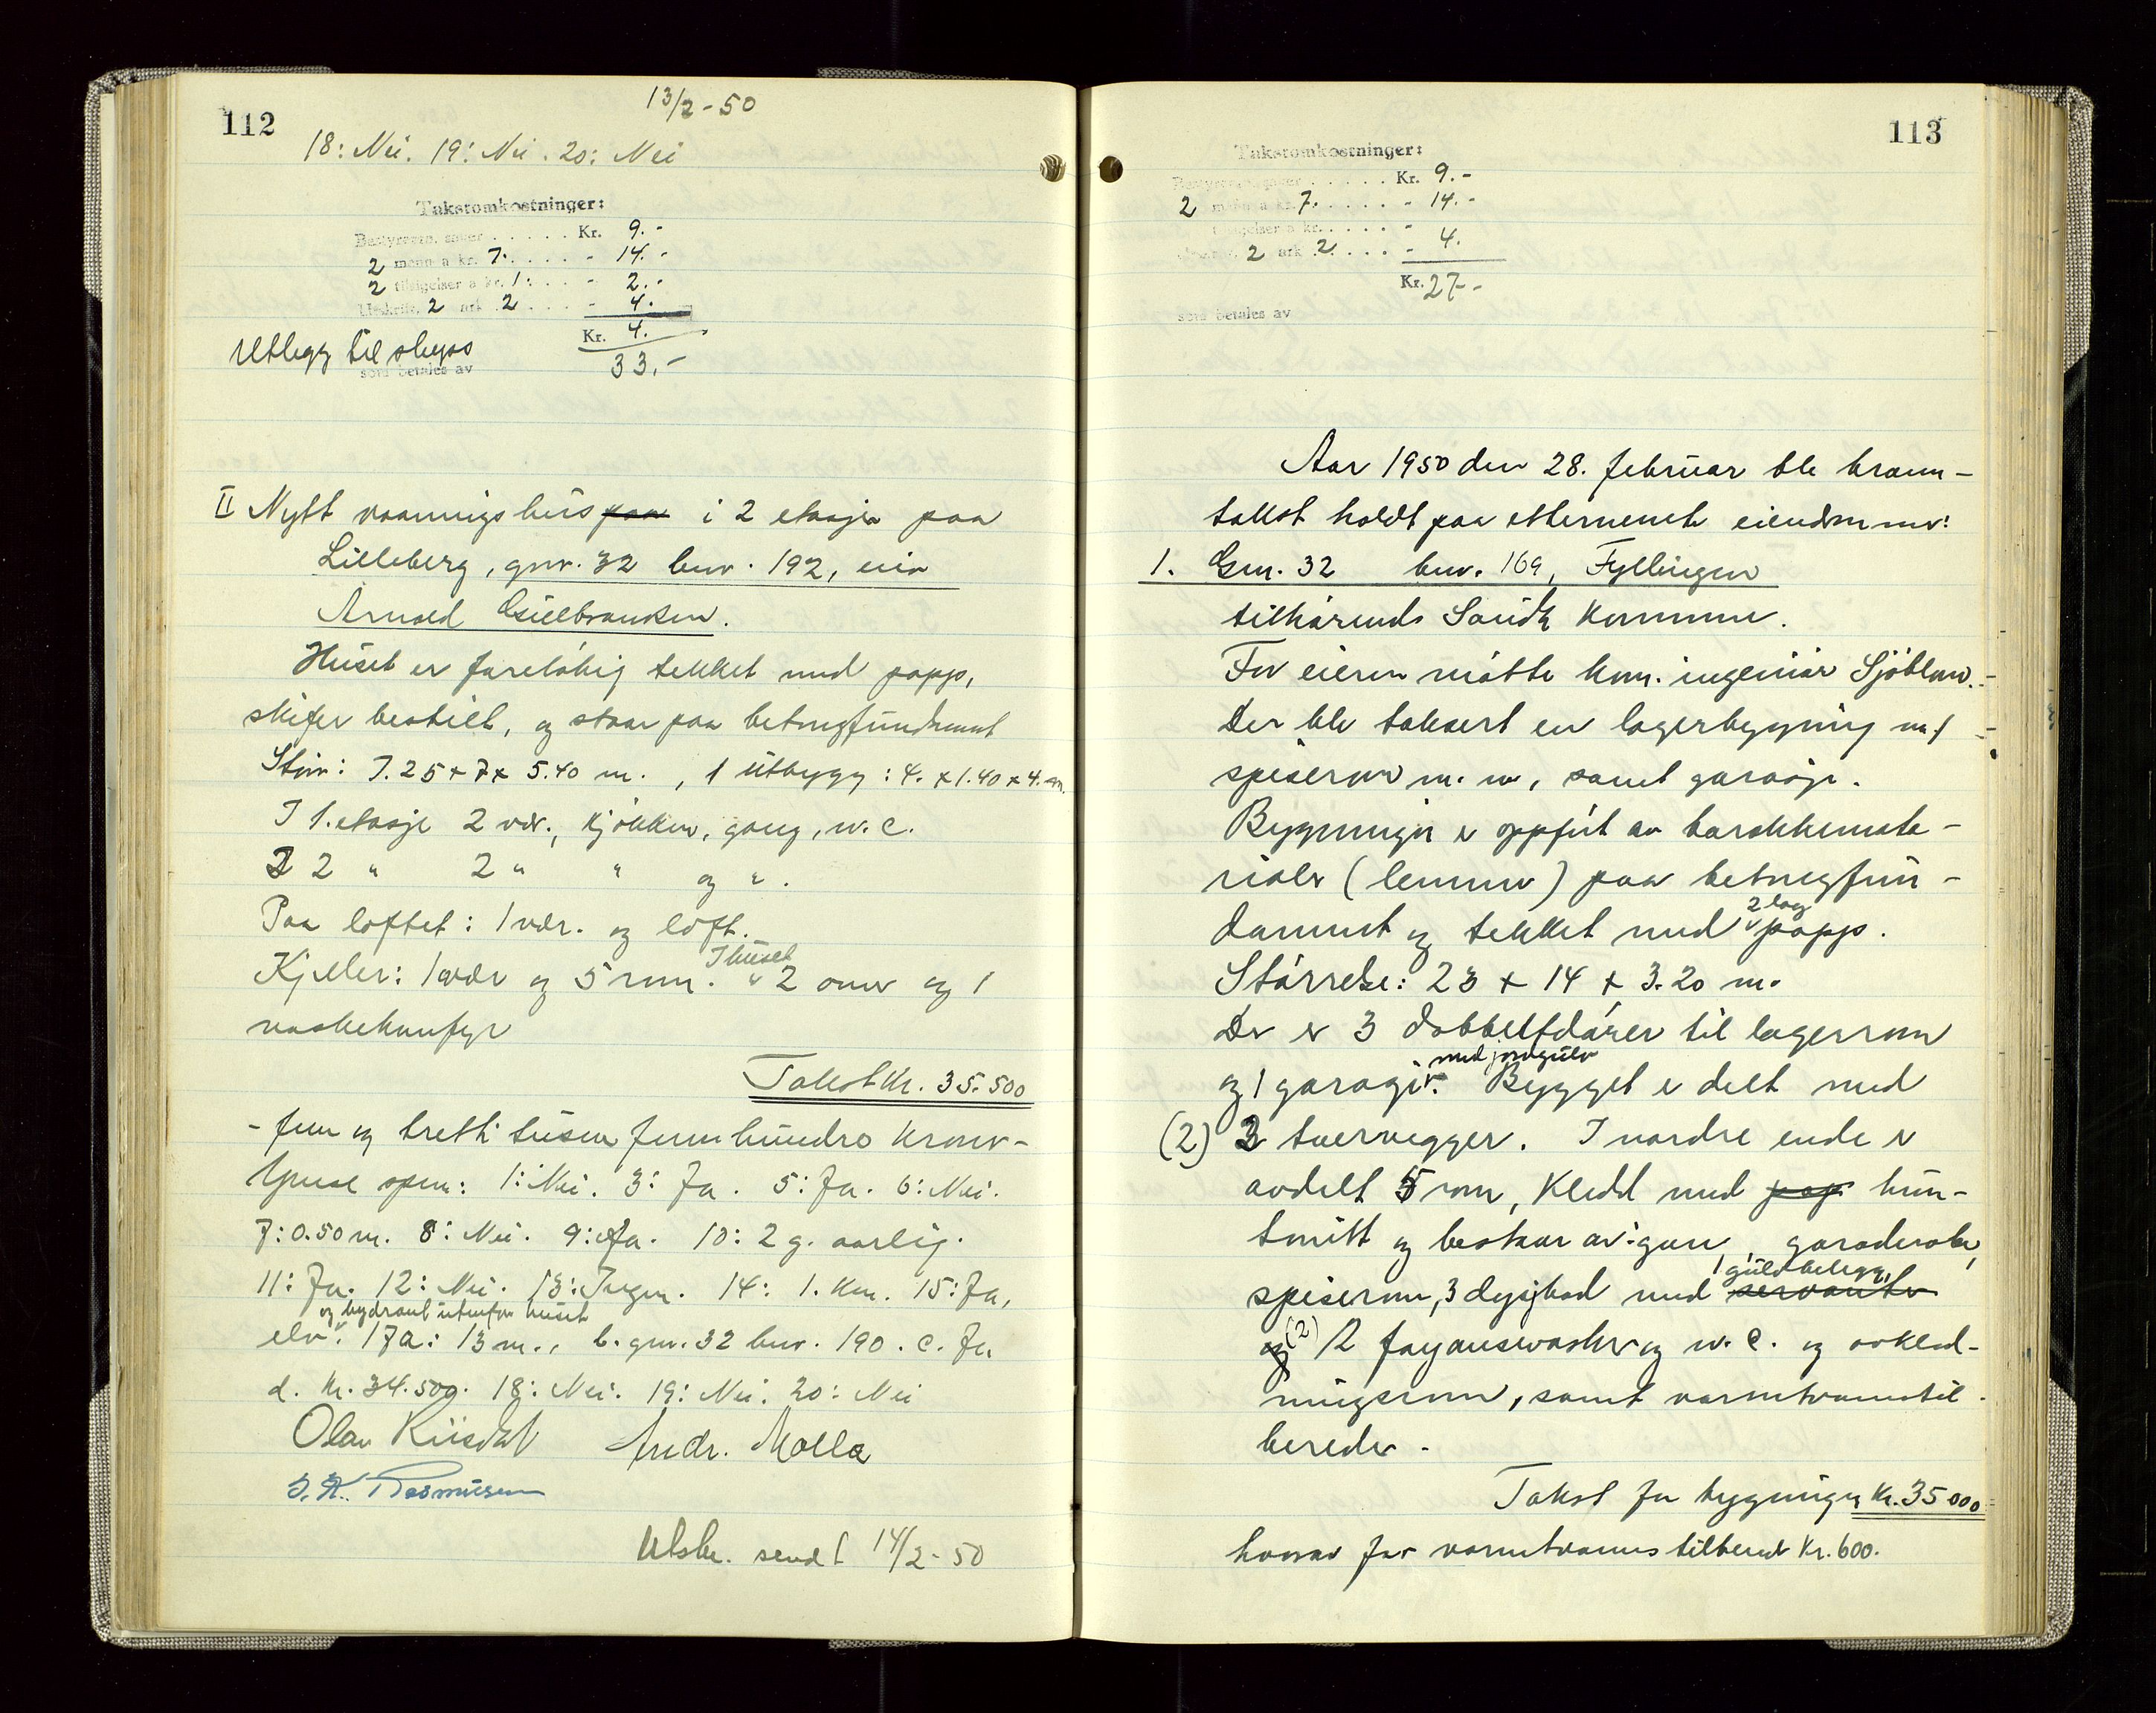 112
13/2-50
18: Nei. 19: Nei. 20: Nei
Takstomkostninger:
Bestyreren, sager . . . . . Kr. 9.-
2 menn a kr. 7. . . . . - 14.-
2 tilsigelser a kr. 1. . . . - 2.-
Utskrift 2 ark 2 . . . . - 4.
Utlegg til skyss Kr. 4.
som betales av 33.-
II Nytt vaaningshus paa i 2 etasjer paa
Lilleberg, gnr. 32 bnr. 192, eier
Arnold Gullbrandsen.
Huset er foreløbig tekket med papp,
skifer bestilt, og staar paa betongfundament
Størr: 7.25 + 7 + 5.40 m. , 1 utbygg: 4. + 1.40 + 4. m.
I 1. etasje 2 vær., kjøkken, gang, w.c.
I 2 " 2 " " og " .
Paa loftet: 1 vær. og loft.
I huset
Kjeller: 1 vær og 5 rom. v 2 ovner og 1
vaskekumfyr
Takst Kr. 35.500
- fem og tretti tusen femhundre kroner -
Ymse spm: 1: Nei. 3: Ja. 5: Ja. 6: Nei.
7: 0.50 m. 8: Nei. 9: Ja. 10: 2 g. aarlig.
11: Ja. 12: Nei. 13: Ingen. 14: 1. km. 15: Ja,
og hydrant utenfor huset
elv v. 17a: 13 m., b. gnr. 32 bnr. 190. c. Ja
d. Kr. 34.500. 18: Nei. 19: Nei. 20: Nei
Olav Riisdal Andr. Molla
Rasmussen
Utskr. sendt 14/2-50
113
Takstomkostninger:
Bestyreren, sager . . . . . Kr. 9.-
2 menn a kr. 7. . . . . - 14.-
tilsigelser a kr. . . . . -
Utskrift 2 ark 2 . . . . - 4.
Kr. 27.-
som betales av
Aar 1950 den 28. februar ble brann-
takst holdt paa etternevnte eiendommer:
1. Gnr. 32 bnr. 169, Fyllingen
tilhørende Sauda Kommune.
For eieren møtte kom. ingeniør Sjöblom.
Der ble taksert en lagerbygning med
spiserom m. m, samt garasje.
Bygningen er oppført av barakkemate-
rialer (lemmer) paa betongfun-
2 lag
dament og tekket med v papp.
Størrelse: 23 + 14 + 3.20 m.
Der er 3 dobbeltdører til lagerrom
med jordgulv
og 1 garasje v. Bygget er delt med
(2) 3 tverrvegger. I nordre ende er
avdelt 5 rom, kledd med pap hun-
tonitt og bestaar av: gang, garderobe,
1 gulvbelegg,
spiserom, 3 dysjbad med servanter
og (2) 12 fayansevasker og w.c. og avkled-
ningsrom, samt varmtvannstil-
bereder.
Takst for bygningen Kr. 35 000
hvorav for varmtvannstilbered Kr. 600.